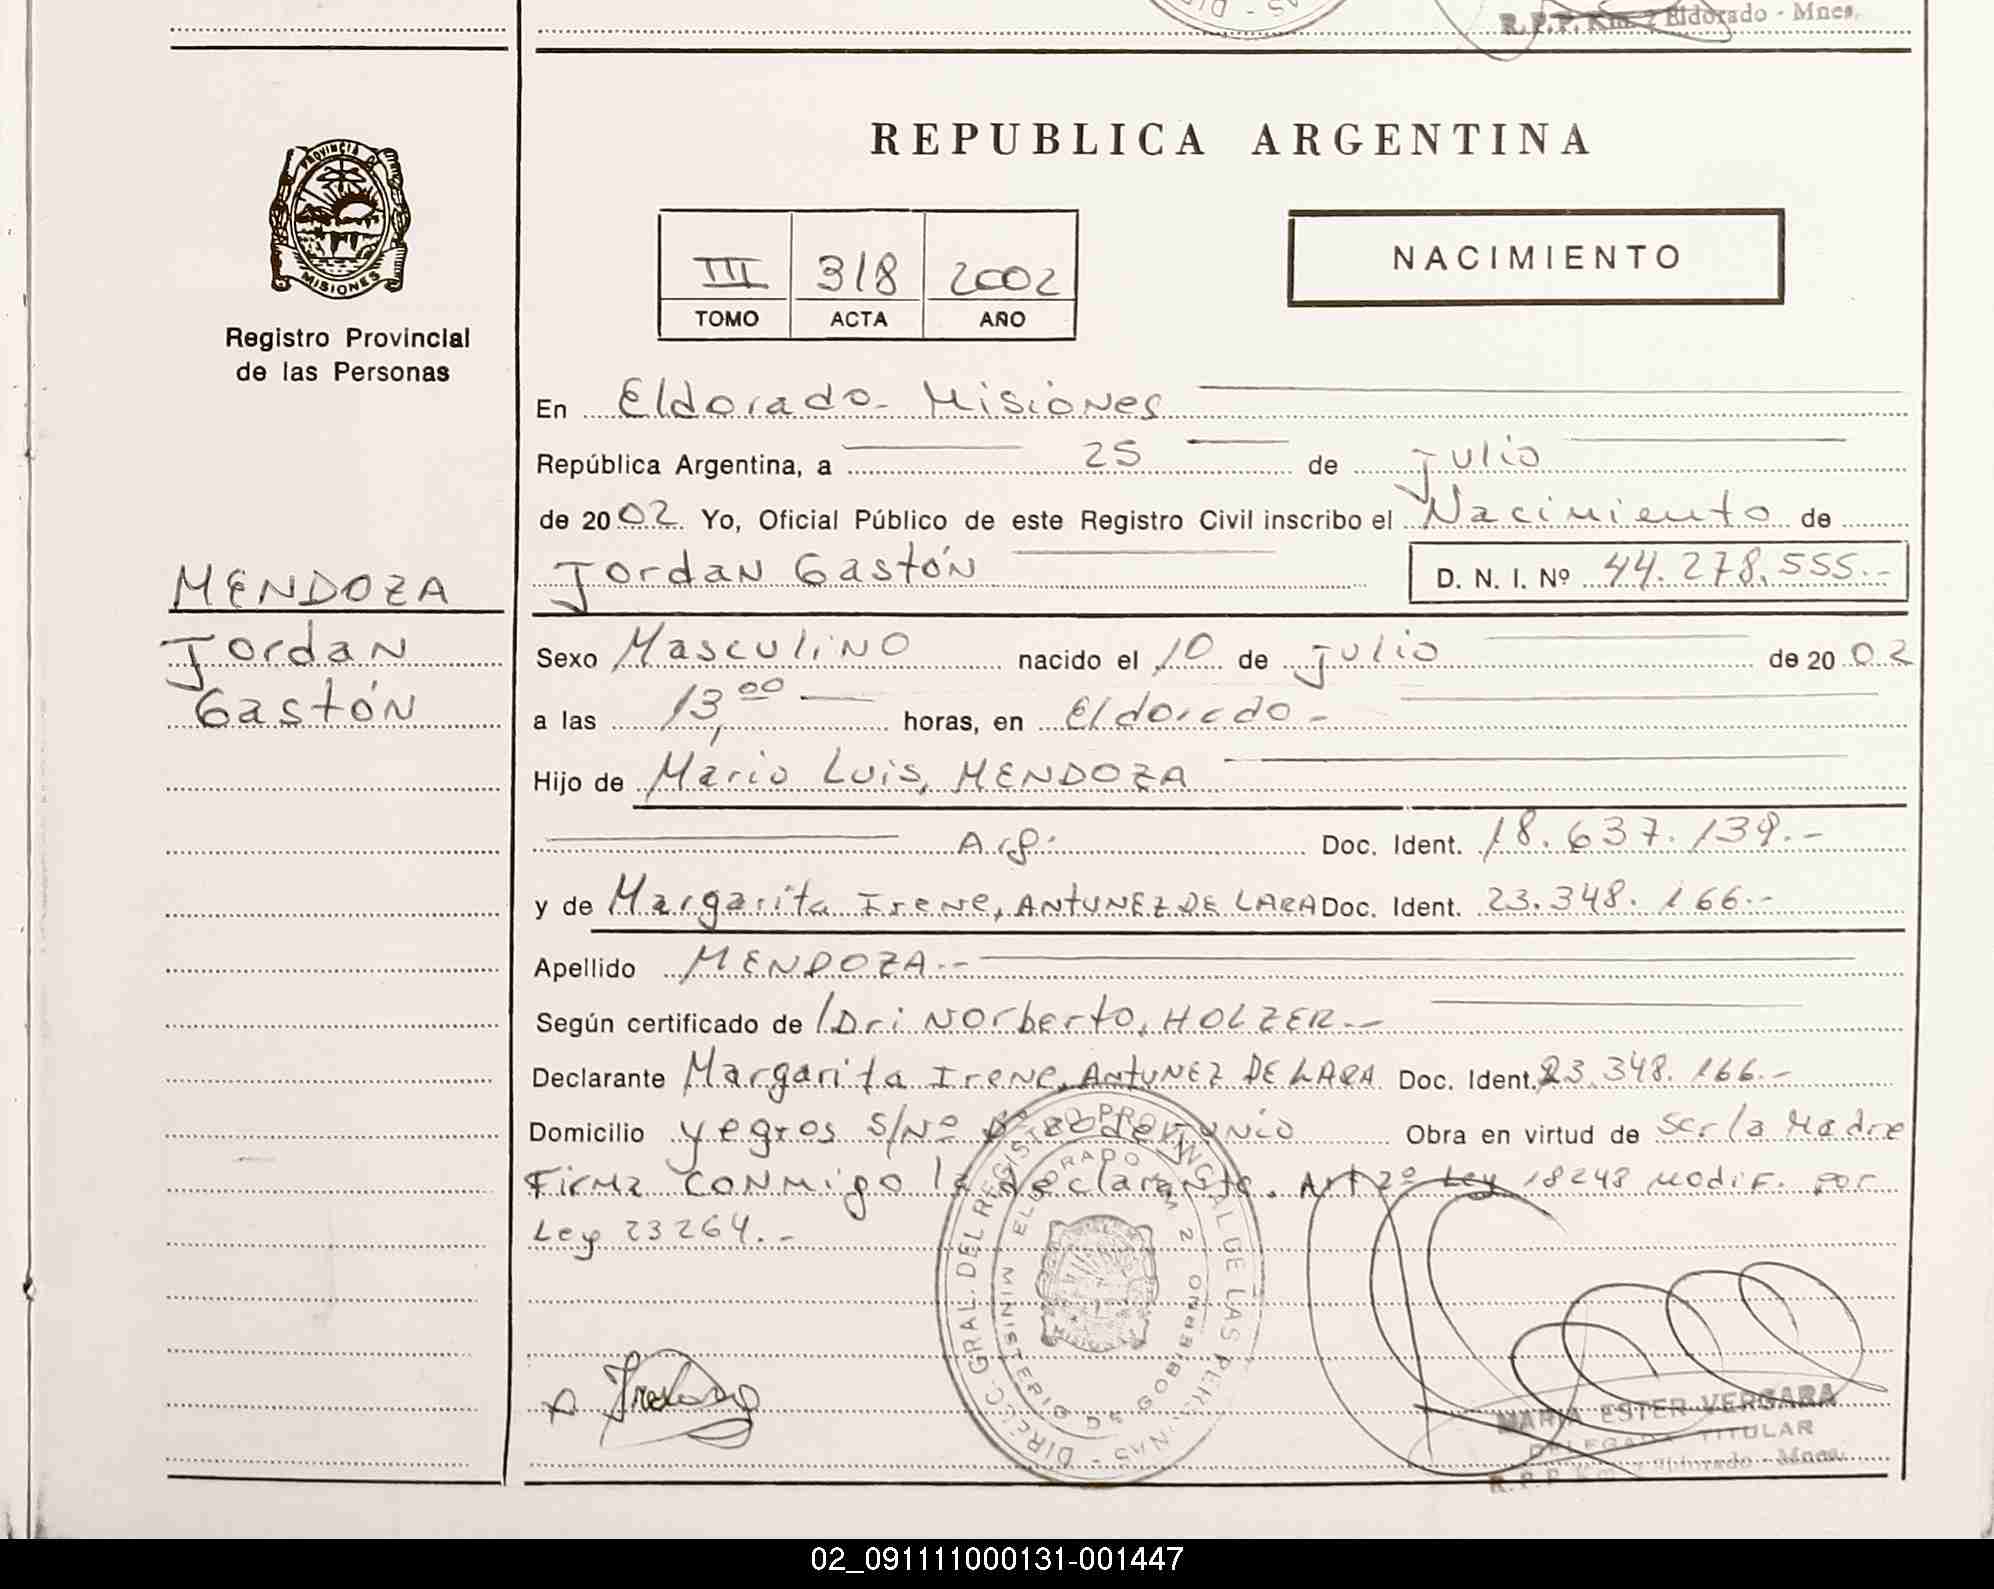 R.P.P. Km. 2 Eldorado - Mnes.
REPUBLICA ARGENTINA
PROVINCIA DE MISIONES
Registro Provincial
de las Personas
III 318 2002
TOMO ACTA AÑO
NACIMIENTO
En Eldorado - Misiones
República Argentina, a 25 de Julio
de 2002. Yo, Oficial Público de este Registro Civil inscribo el Nacimiento de
Jordan Gastón D. N. I. Nº 44.278.555.-
MENDOZA
Jordan
Gastón
Sexo Masculino nacido el 10 de Julio de 2002
a las 13,00 horas, en Eldorado -
Hijo de Mario Luis, MENDOZA
Arg. Doc. Ident. 18.637.139.-
y de Margarita Irene, ANTUNEZ DE LARA Doc. Ident. 23.348.166.-
Apellido MENDOZA.-
Según certificado de Dr. Norberto, HOLZER.-
Declarante Margarita Irene, ANTUNEZ DE LARA Doc. Ident. 23.348.166.-
Domicilio Yegros s/Nº Bº 20 de Junio Obra en virtud de Ser la Madre
Firma conmigo la declarante. Art 2º Ley 18248 modif. por
Ley 23264.-
DIREC. GRAL. DEL REGISTRO PROVINCIAL DE LAS PERSONAS
MINISTERIO DE GOBIERNO
ELDORADO KM 2
MARIA ESTER VERGARA
DELEGADA TITULAR
R.P.P. Km. 2 Eldorado - Mnes.
02_091111000131-001447